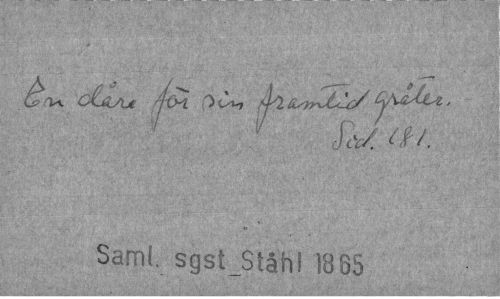 En dåre för sin framtid gråter.
Sid. 181.
Saml. sgst_Ståhl 1865